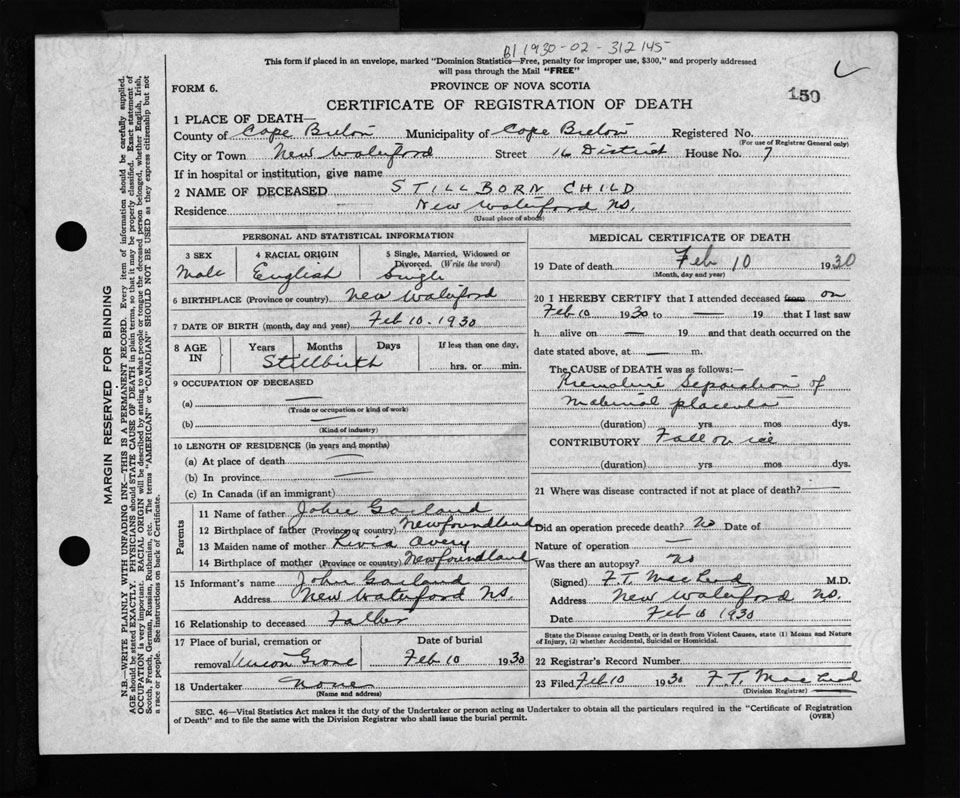 B1 1930-02-312145
This form if placed in an envelope, marked "Dominion Statistics—Free, penalty for improper use, $300," and properly addressed
will pass through the Mail "FREE"
150
FORM 6.
PROVINCE OF NOVA SCOTIA
CERTIFICATE OF REGISTRATION OF DEATH
1 PLACE OF DEATH—
County of Cape Breton Municipality of Cape Breton Registered No.
(For use of Registrar General only)
City or Town New Waterford Street 16 District House No. 7
If in hospital or institution, give name
2 NAME OF DECEASED STILLBORN CHILD
Residence New Waterford NS.
(Usual place of abode)
PERSONAL AND STATISTICAL INFORMATION
3 SEX 4 RACIAL ORIGIN 5 Single, Married, Widowed or Divorced. (Write the word)
Male English Single
6 BIRTHPLACE (Province or country) New Waterford
7 DATE OF BIRTH (month, day and year) Feb 10. 1930
8 AGE IN Years Months Days If less than one day,
Stillbirth hrs. or min.
9 OCCUPATION OF DECEASED
(a) —
(Trade or occupation or kind of work)
(b) —
(Kind of industry)
10 LENGTH OF RESIDENCE (in years and months)
(a) At place of death —
(b) In province —
(c) In Canada (if an immigrant)
Parents
11 Name of father John Garland
12 Birthplace of father (Province or country) Newfoundland
13 Maiden name of mother Livia Avery
14 Birthplace of mother (Province or country) Newfoundland
15 Informant's name John Garland
Address New Waterford NS.
16 Relationship to deceased Father
17 Place of burial, cremation or Date of burial
removal Grove Feb 10 1930
18 Undertaker None
(Name and address)
MEDICAL CERTIFICATE OF DEATH
19 Date of death Feb 10 1930
(Month, day and year)
20 I HEREBY CERTIFY that I attended deceased from on
Feb 10 1930 to — 19 that I last saw
h alive on — 19 and that death occurred on the
date stated above, at — m.
The CAUSE OF DEATH was as follows:—
Premature Separation of
Maternal placenta
(duration) yrs mos dys.
CONTRIBUTORY Fall on ice
(duration) yrs mos dys.
21 Where was disease contracted if not at place of death? —
Did an operation precede death? No Date of
Nature of operation —
Was there an autopsy? No
(Signed) F.T. MacLeod M.D.
Address New Waterford NS.
Date Feb 10 1930
State the Disease causing Death, or in death from Violent Causes, state (1) Means and Nature
of Injury, (2) whether Accidental, Suicidal or Homicidal.
22 Registrar's Record Number
23 Filed Feb 10 1930 F.T. MacLeod
(Division Registrar)
SEC. 46—Vital Statistics Act makes it the duty of the Undertaker or person acting as Undertaker to obtain all the particulars required in the "Certificate of Registration
of Death" and to file the same with the Division Registrar who shall issue the burial permit.
(OVER)
MARGIN RESERVED FOR BINDING
N.B.—WRITE PLAINLY WITH UNFADING INK—THIS IS A PERMANENT RECORD. Every item of information should be carefully supplied.
AGE should be stated EXACTLY. PHYSICIANS should STATE CAUSE OF DEATH in plain terms, so that it may be properly classified. Exact statement of
OCCUPATION is very important. RACIAL ORIGIN will be described by stating to what people or tongue the deceased person belonged, whether English, Irish,
Scotch, French, German, Russian, Ruthenian, etc. The terms "AMERICAN" or "CANADIAN" SHOULD NOT BE USED as they express citizenship but not
a race or people. See instructions on back of Certificate.